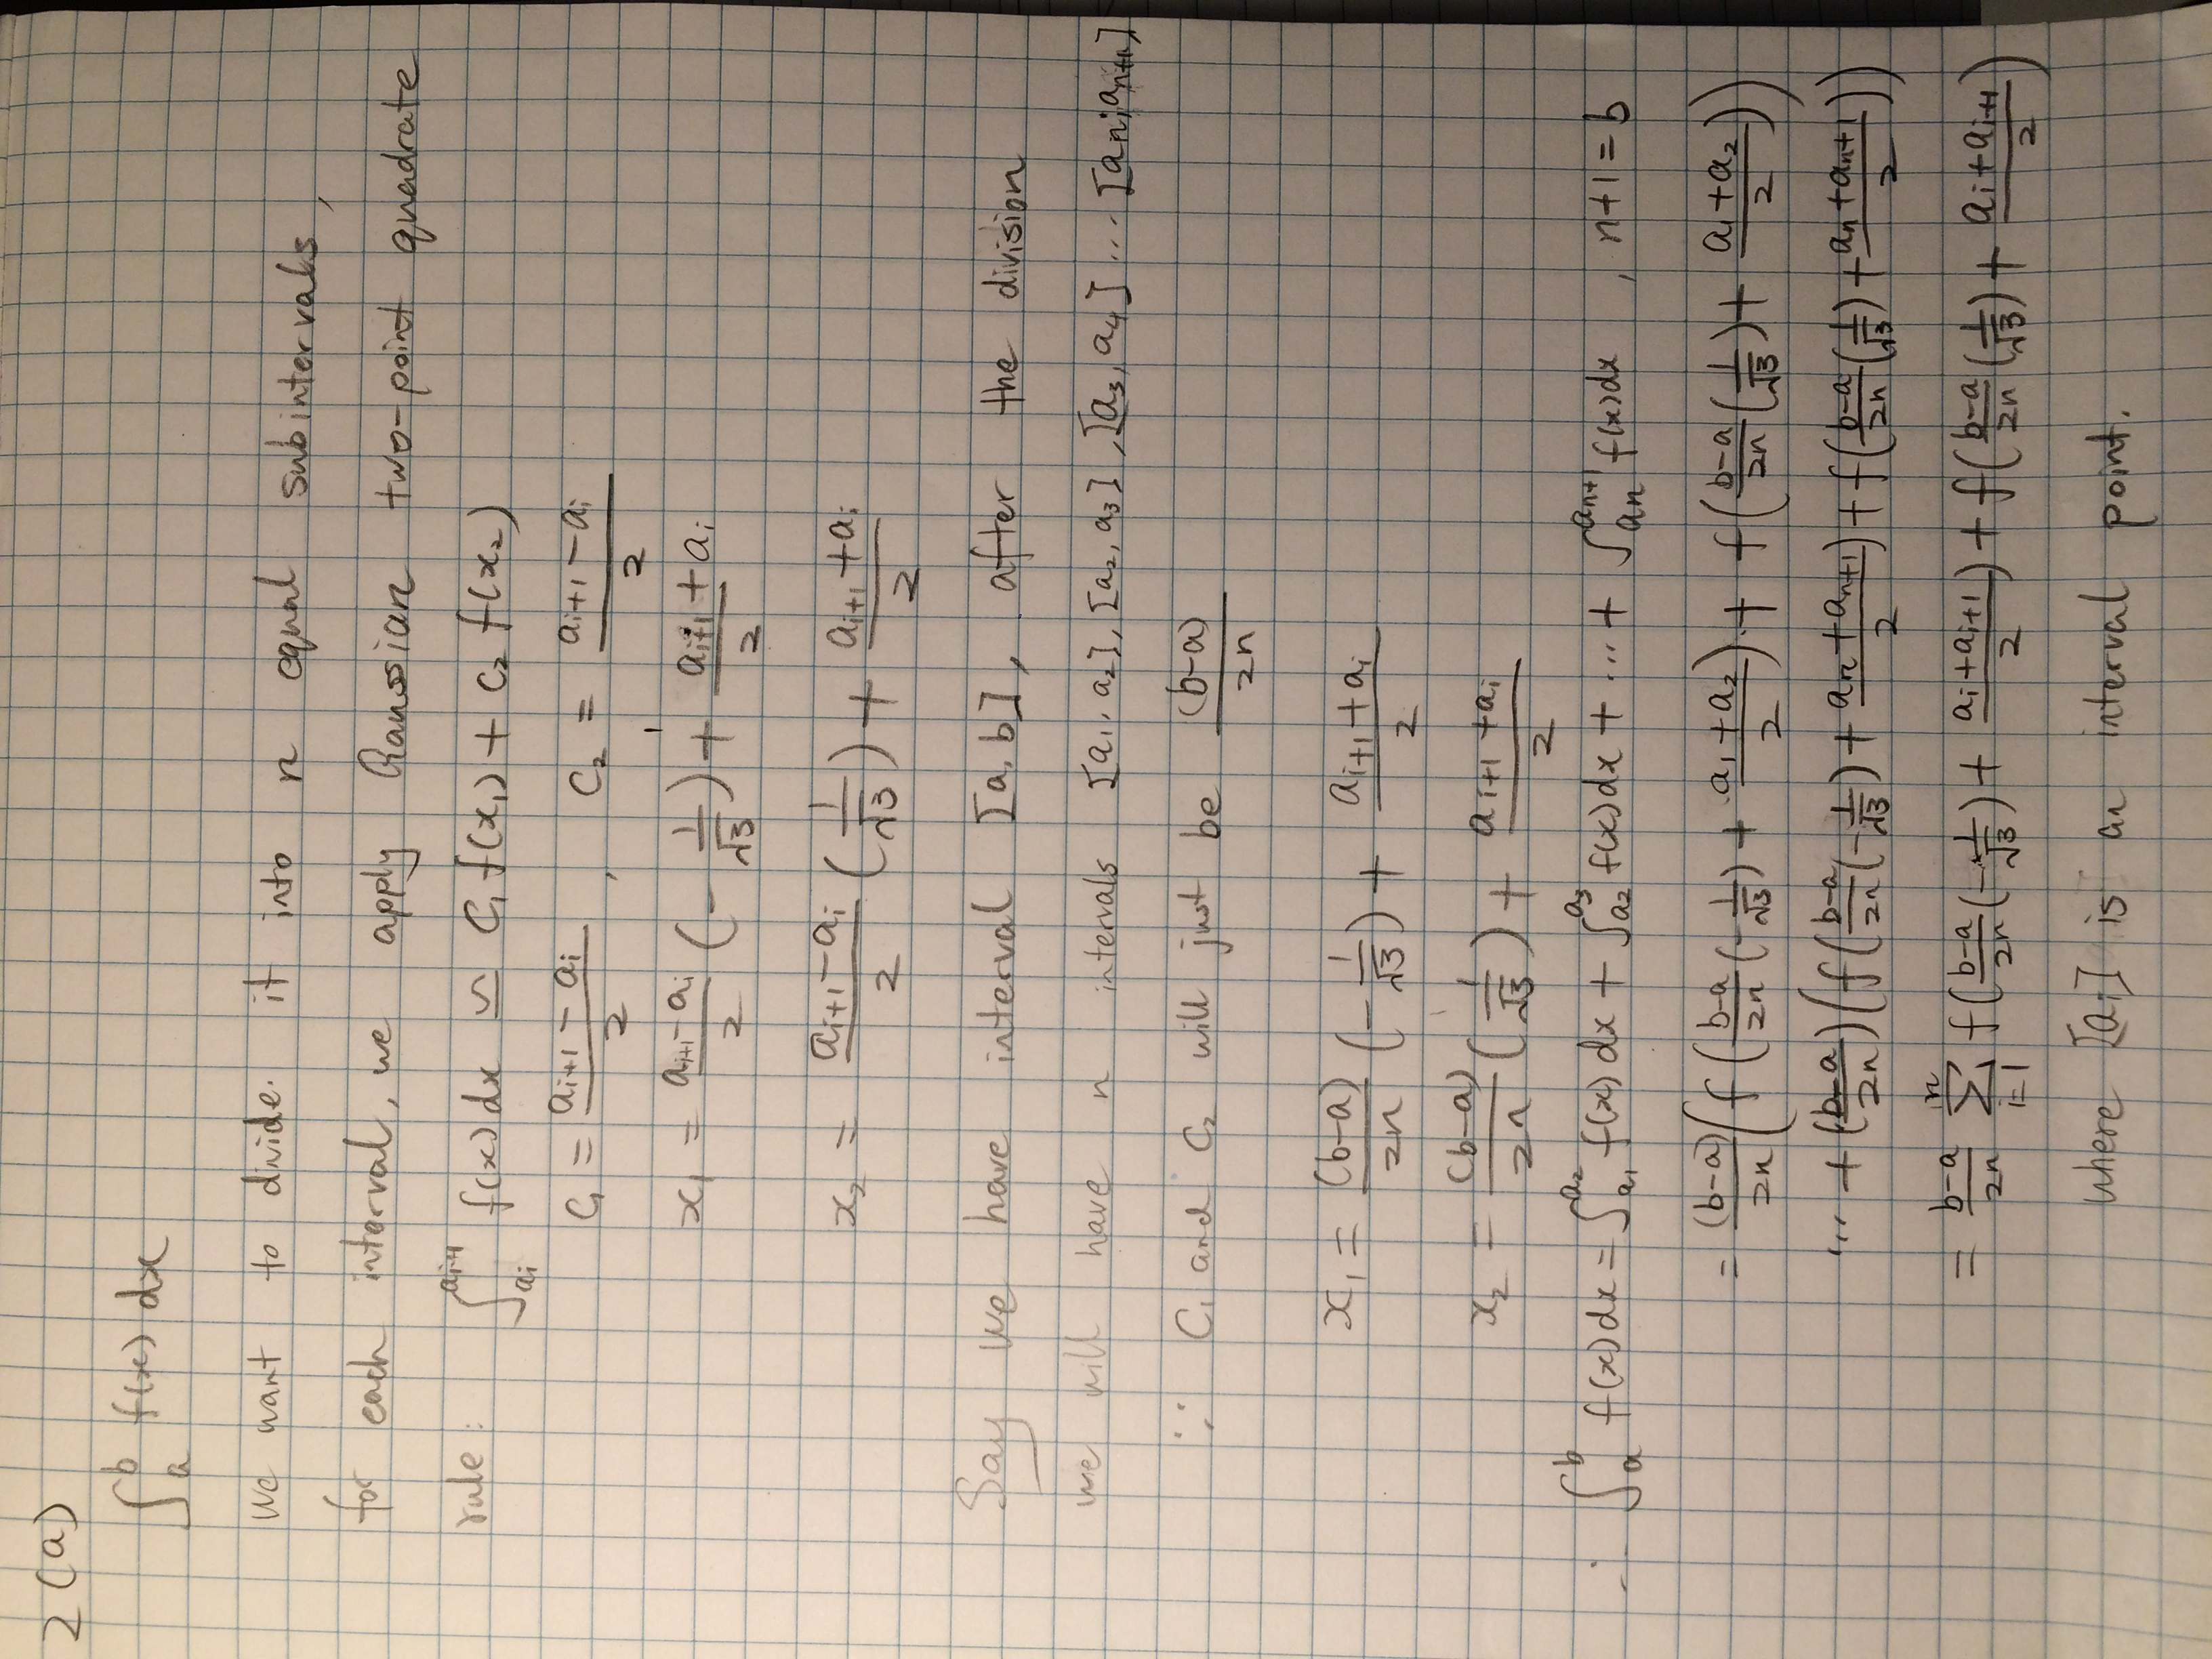 2 (a)
∫_a^b f(x) dx
We want to divide. it into n equal subintervals,
for each interval, we apply Gaussian two-point quadrate
rule: ∫_{a_i}^{a_{i+1}} f(x) dx ≃ C_1 f(x_1) + C_2 f(x_2)
C_1 = (a_{i+1} - a_i)/2 , C_2 = (a_{i+1} - a_i)/2
x_1 = (a_{i+1} - a_i)/2 (-1/√3) + (a_{i+1} + a_i)/2
x_2 = (a_{i+1} - a_i)/2 (1/√3) + (a_{i+1} + a_i)/2
Say we have interval [a, b], after the division
we will have n intervals [a_1, a_2], [a_2, a_3], [a_3, a_4] ... [a_n, a_{n+1}]
∵ C_1 and C_2 will just be (b-a)/2n
x_1 = (b-a)/2n (-1/√3) + (a_{i+1} + a_i)/2
x_2 = (b-a)/2n (1/√3) + (a_{i+1} + a_i)/2
∴ ∫_a^b f(x) dx = ∫_{a_1}^{a_2} f(x) dx + ∫_{a_2}^{a_3} f(x) dx + ... + ∫_{a_n}^{a_{n+1}} f(x) dx , n+1 = b
= (b-a)/2n (f((b-a)/2n (-1/√3) + (a_1 + a_2)/2) + f((b-a)/2n (1/√3) + (a_1 + a_2)/2))
... + ((b-a)/2n) (f((b-a)/2n (-1/√3) + (a_n + a_{n+1})/2) + f((b-a)/2n (1/√3) + (a_n + a_{n+1})/2))
= (b-a)/2n ∑_{i=1}^n f((b-a)/2n (-1/√3) + (a_i + a_{i+1})/2) + f((b-a)/2n (1/√3) + (a_i + a_{i+1})/2)
where [a_i] is an interval point.